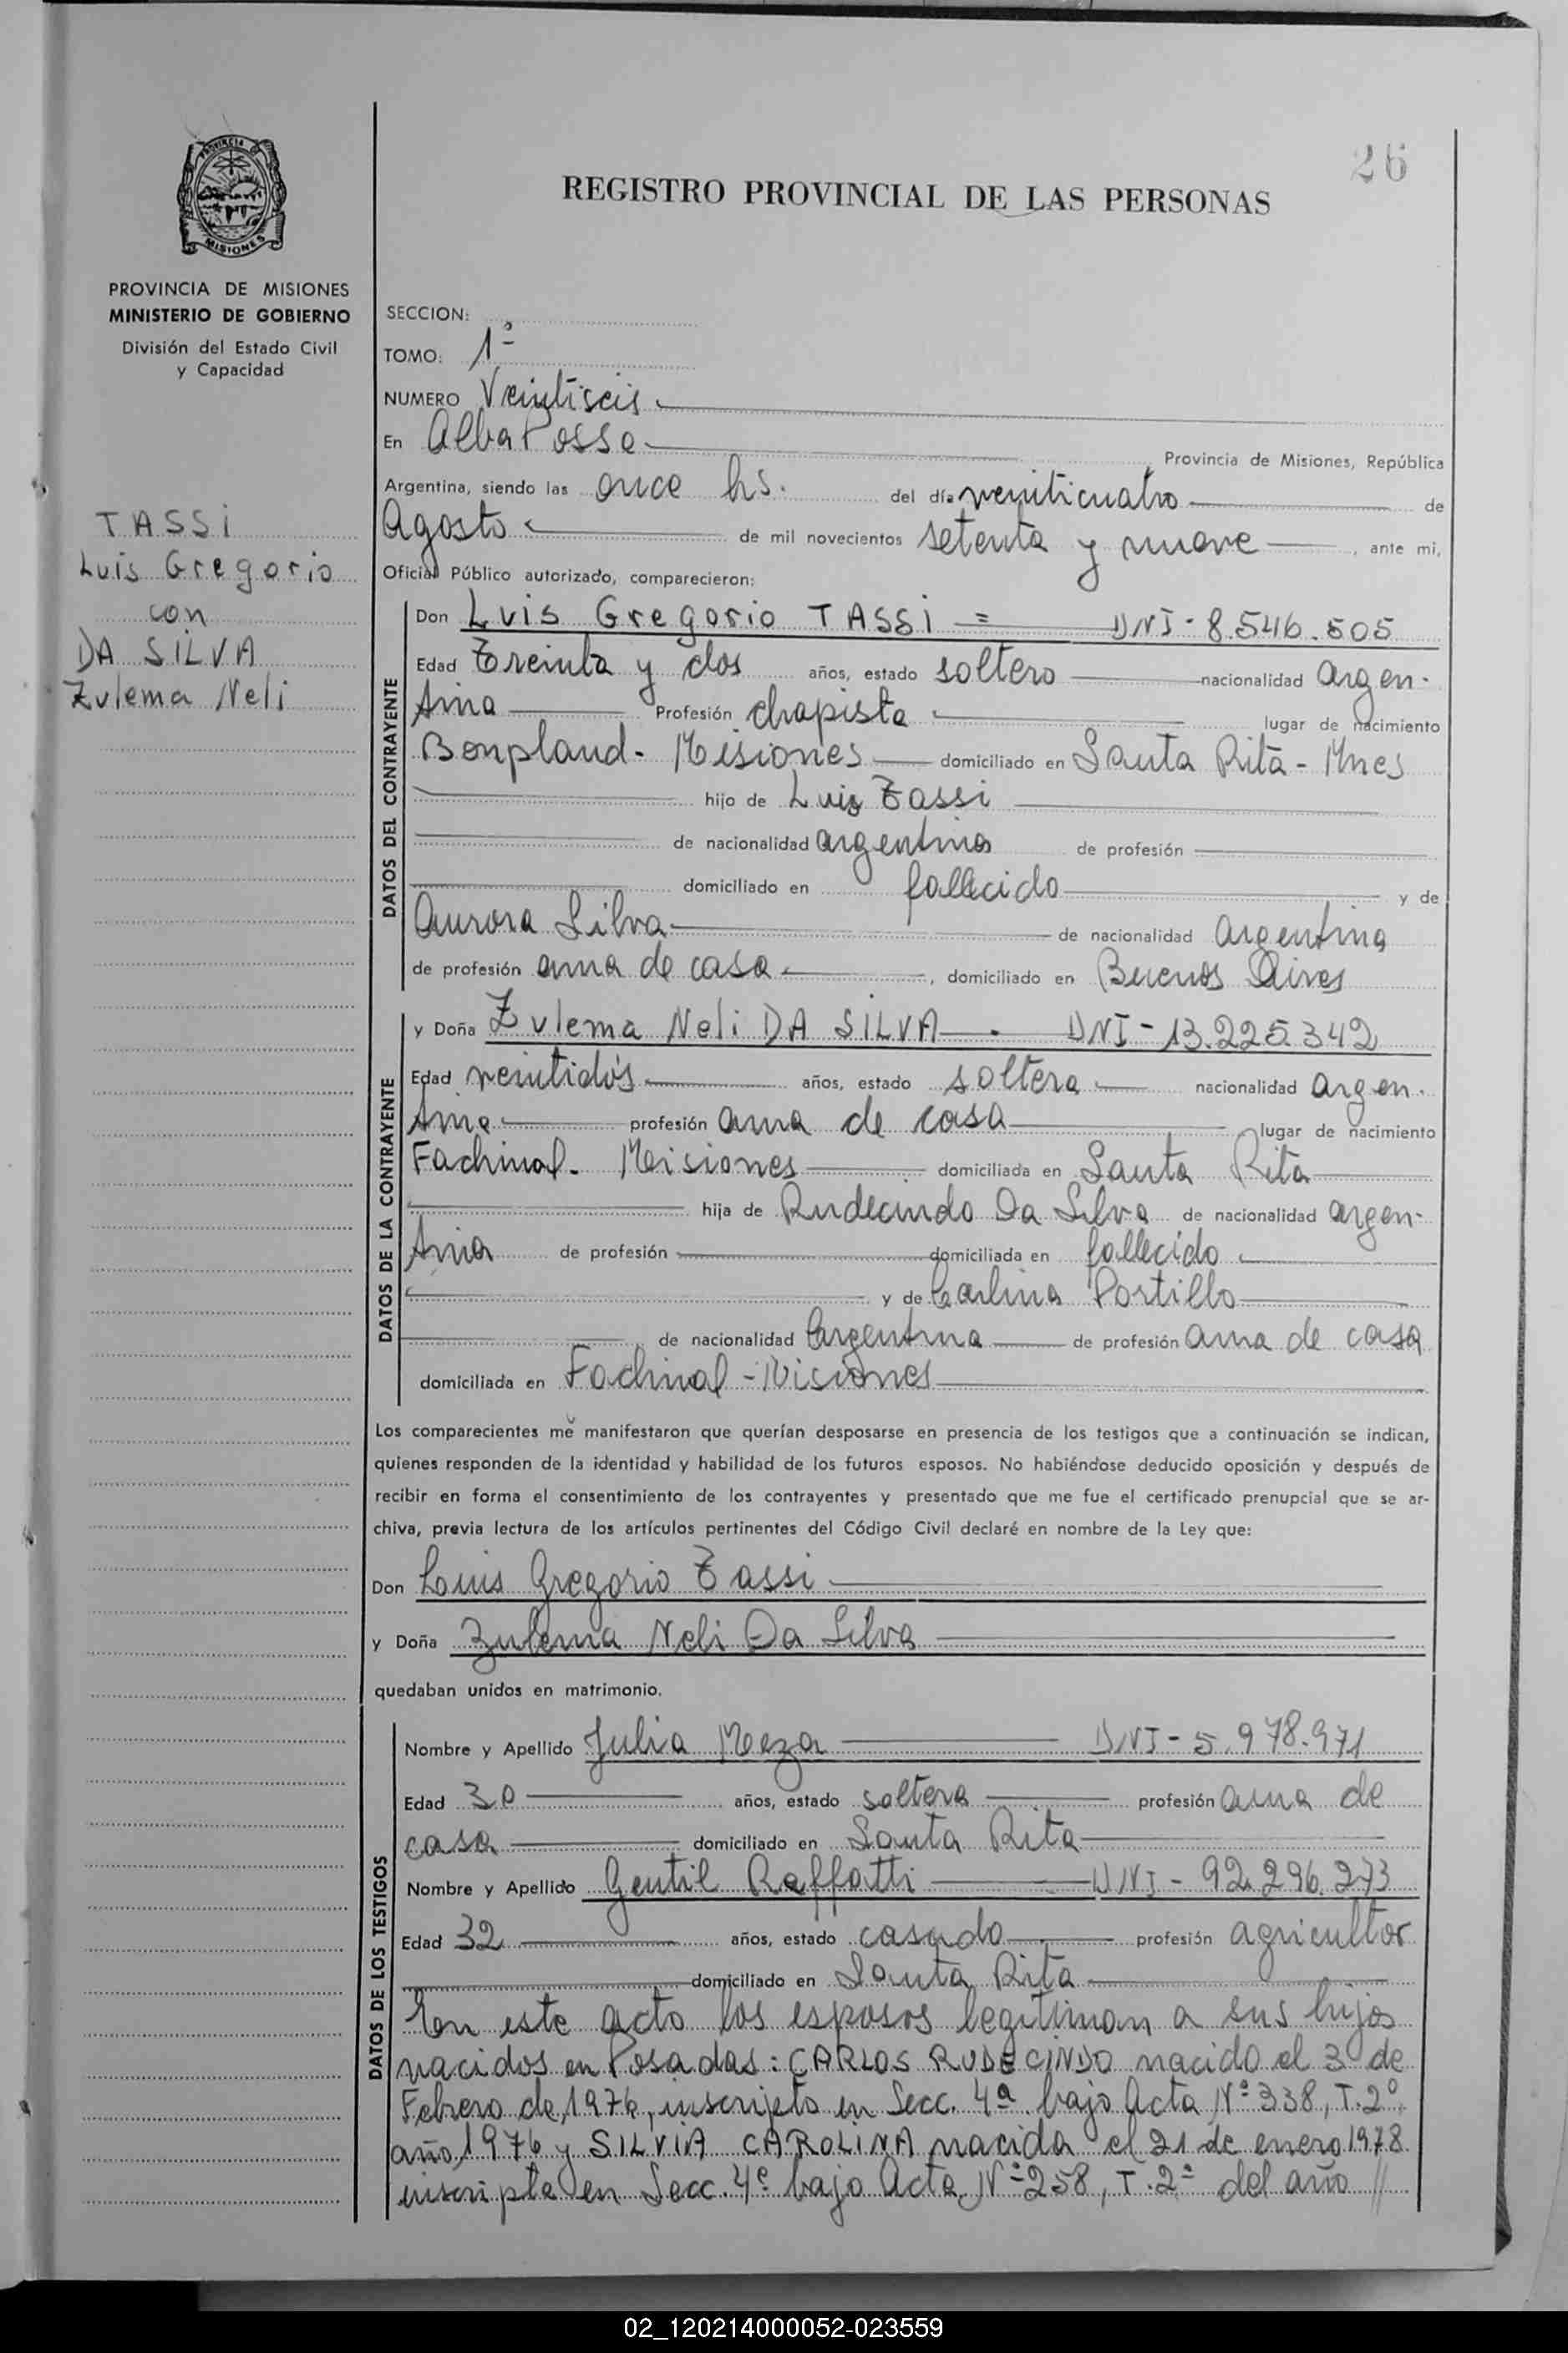 26
REGISTRO PROVINCIAL DE LAS PERSONAS
PROVINCIA
MISIONES
PROVINCIA DE MISIONES
MINISTERIO DE GOBIERNO
División del Estado Civil
y Capacidad
TASSI
Luis Gregorio
con
DA SILVA
Zulema Neli
SECCION:
TOMO: 1º
NUMERO Veintiseis
En Alba Posse Provincia de Misiones, República
Argentina, siendo las once hs. del día veinticuatro de
Agosto de mil novecientos setenta y nueve, ante mi,
Oficial Público autorizado, comparecieron:
DATOS DEL CONTRAYENTE
Don Luis Gregorio TASSI = DNI - 8.546.505
Edad Treinta y dos años, estado soltero nacionalidad argen-
tina Profesión chapista lugar de nacimiento
Bonpland - Misiones domiciliado en Santa Rita - Mnes
hijo de Luis Tassi
de nacionalidad argentina de profesión
domiciliado en fallecido y de
Aurora Silva de nacionalidad argentina
de profesión ama de casa, domiciliado en Buenos Aires
DATOS DE LA CONTRAYENTE
y Doña Zulema Neli DA SILVA - DNI - 13.225.342
Edad veintidós años, estado soltera nacionalidad argen-
tina profesión ama de casa lugar de nacimiento
Fachinal - Misiones domiciliada en Santa Rita
hija de Rudecindo Da Silva de nacionalidad argen-
tina de profesión domiciliada en fallecido
y de Carlina Portillo
de nacionalidad Argentina de profesión ama de casa
domiciliada en Fachinal - Misiones
Los comparecientes me manifestaron que querían desposarse en presencia de los testigos que a continuación se indican,
quienes responden de la identidad y habilidad de los futuros esposos. No habiéndose deducido oposición y después de
recibir en forma el consentimiento de los contrayentes y presentado que me fue el certificado prenupcial que se ar-
chiva, previa lectura de los artículos pertinentes del Código Civil declaré en nombre de la Ley que:
Don Luis Gregorio Tassi
y Doña Zulema Neli Da Silva
quedaban unidos en matrimonio.
DATOS DE LOS TESTIGOS
Nombre y Apellido Julia Meza DNI - 5.978.971
Edad 30 años, estado soltera profesión ama de
casa domiciliado en Santa Rita
Nombre y Apellido Gentil Raffatti DNI - 92.296.273
Edad 32 años, estado casado profesión agricultor
domiciliado en Santa Rita
En este acto los esposos legitiman a sus hijos
nacidos en Posadas: CARLOS RUDECINDO nacido el 3 de
Febrero de 1976, inscripto en Secc. 4ª bajo Acta Nº 338, T. 2º
año 1976 y SILVIA CAROLINA nacida el 21 de enero 1978
inscripta en Secc. 4ª bajo Acta Nº 258, T. 2º del año //
02_120214000052-023559